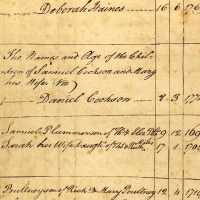 Deborah Haines 16 6 176
The Names and Age of the Chil-
dren of Samuel Cookson and Mary
his Wife Viz
Daniel Cookson 8 3 177
Samuel Plummer son of 9 12 169
Sarah his Wife daughr of 17 1 170
Poultney son of & Mary Poultney 12 4 171